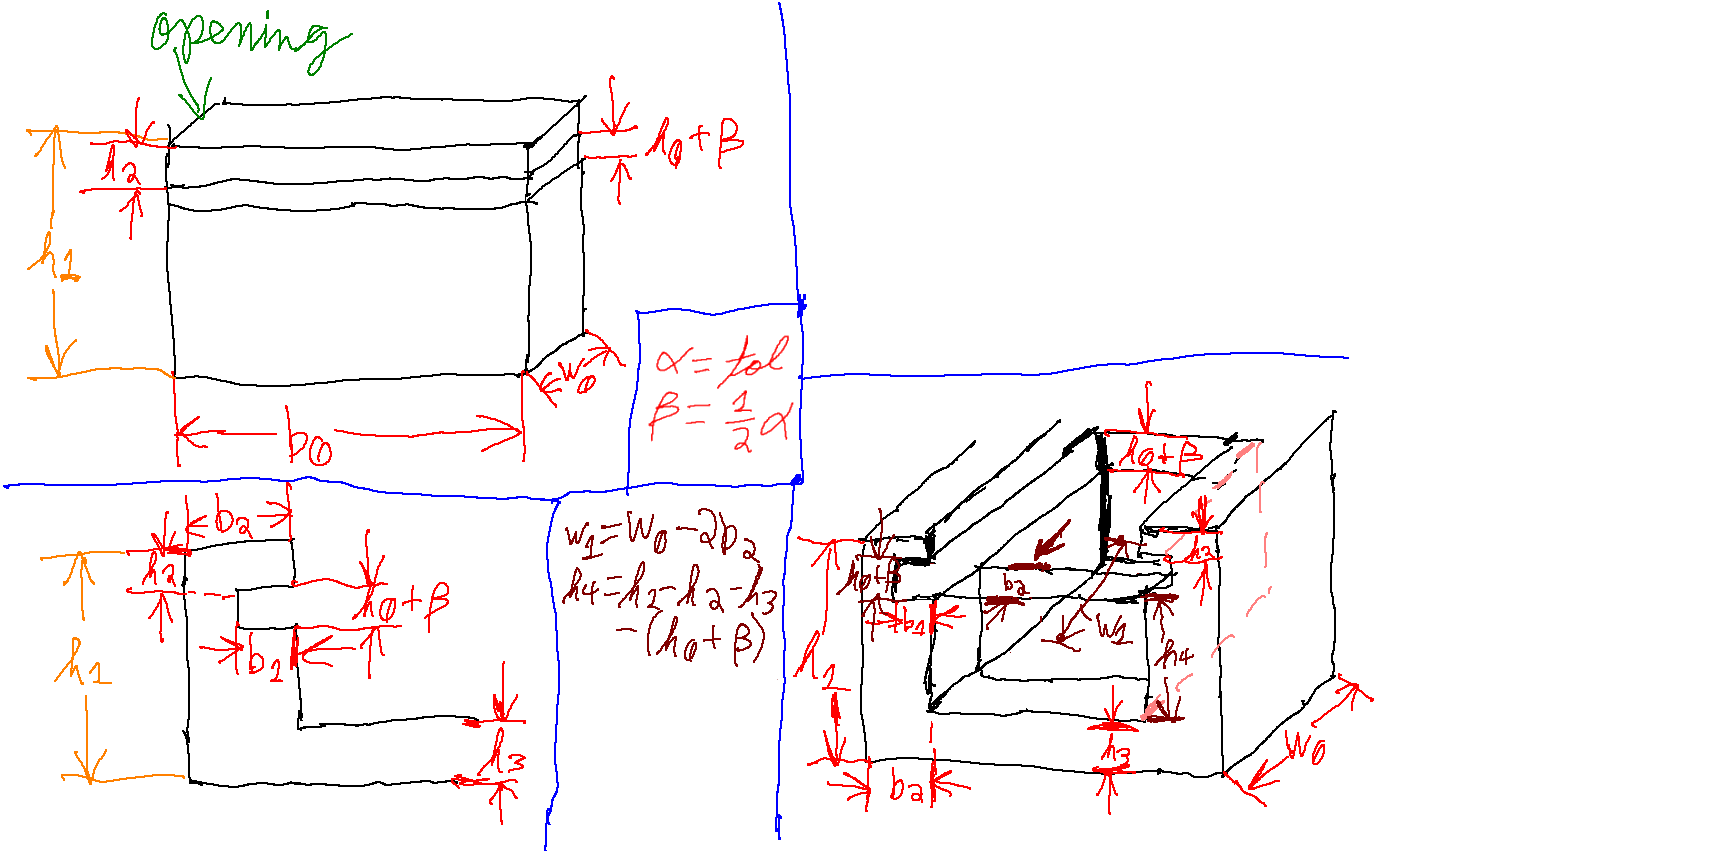 opening
h2
h0+β
h1
w0
b0
α=tol
β=1/2α
b2
h2
h0+β
b1
h1
h3
w1=w0-2b2
h4=h1-h2-h3
-(h0+β)
h0+β
h2
h0+β
b2
b1
w1
h4
h1
h3
w0
b2